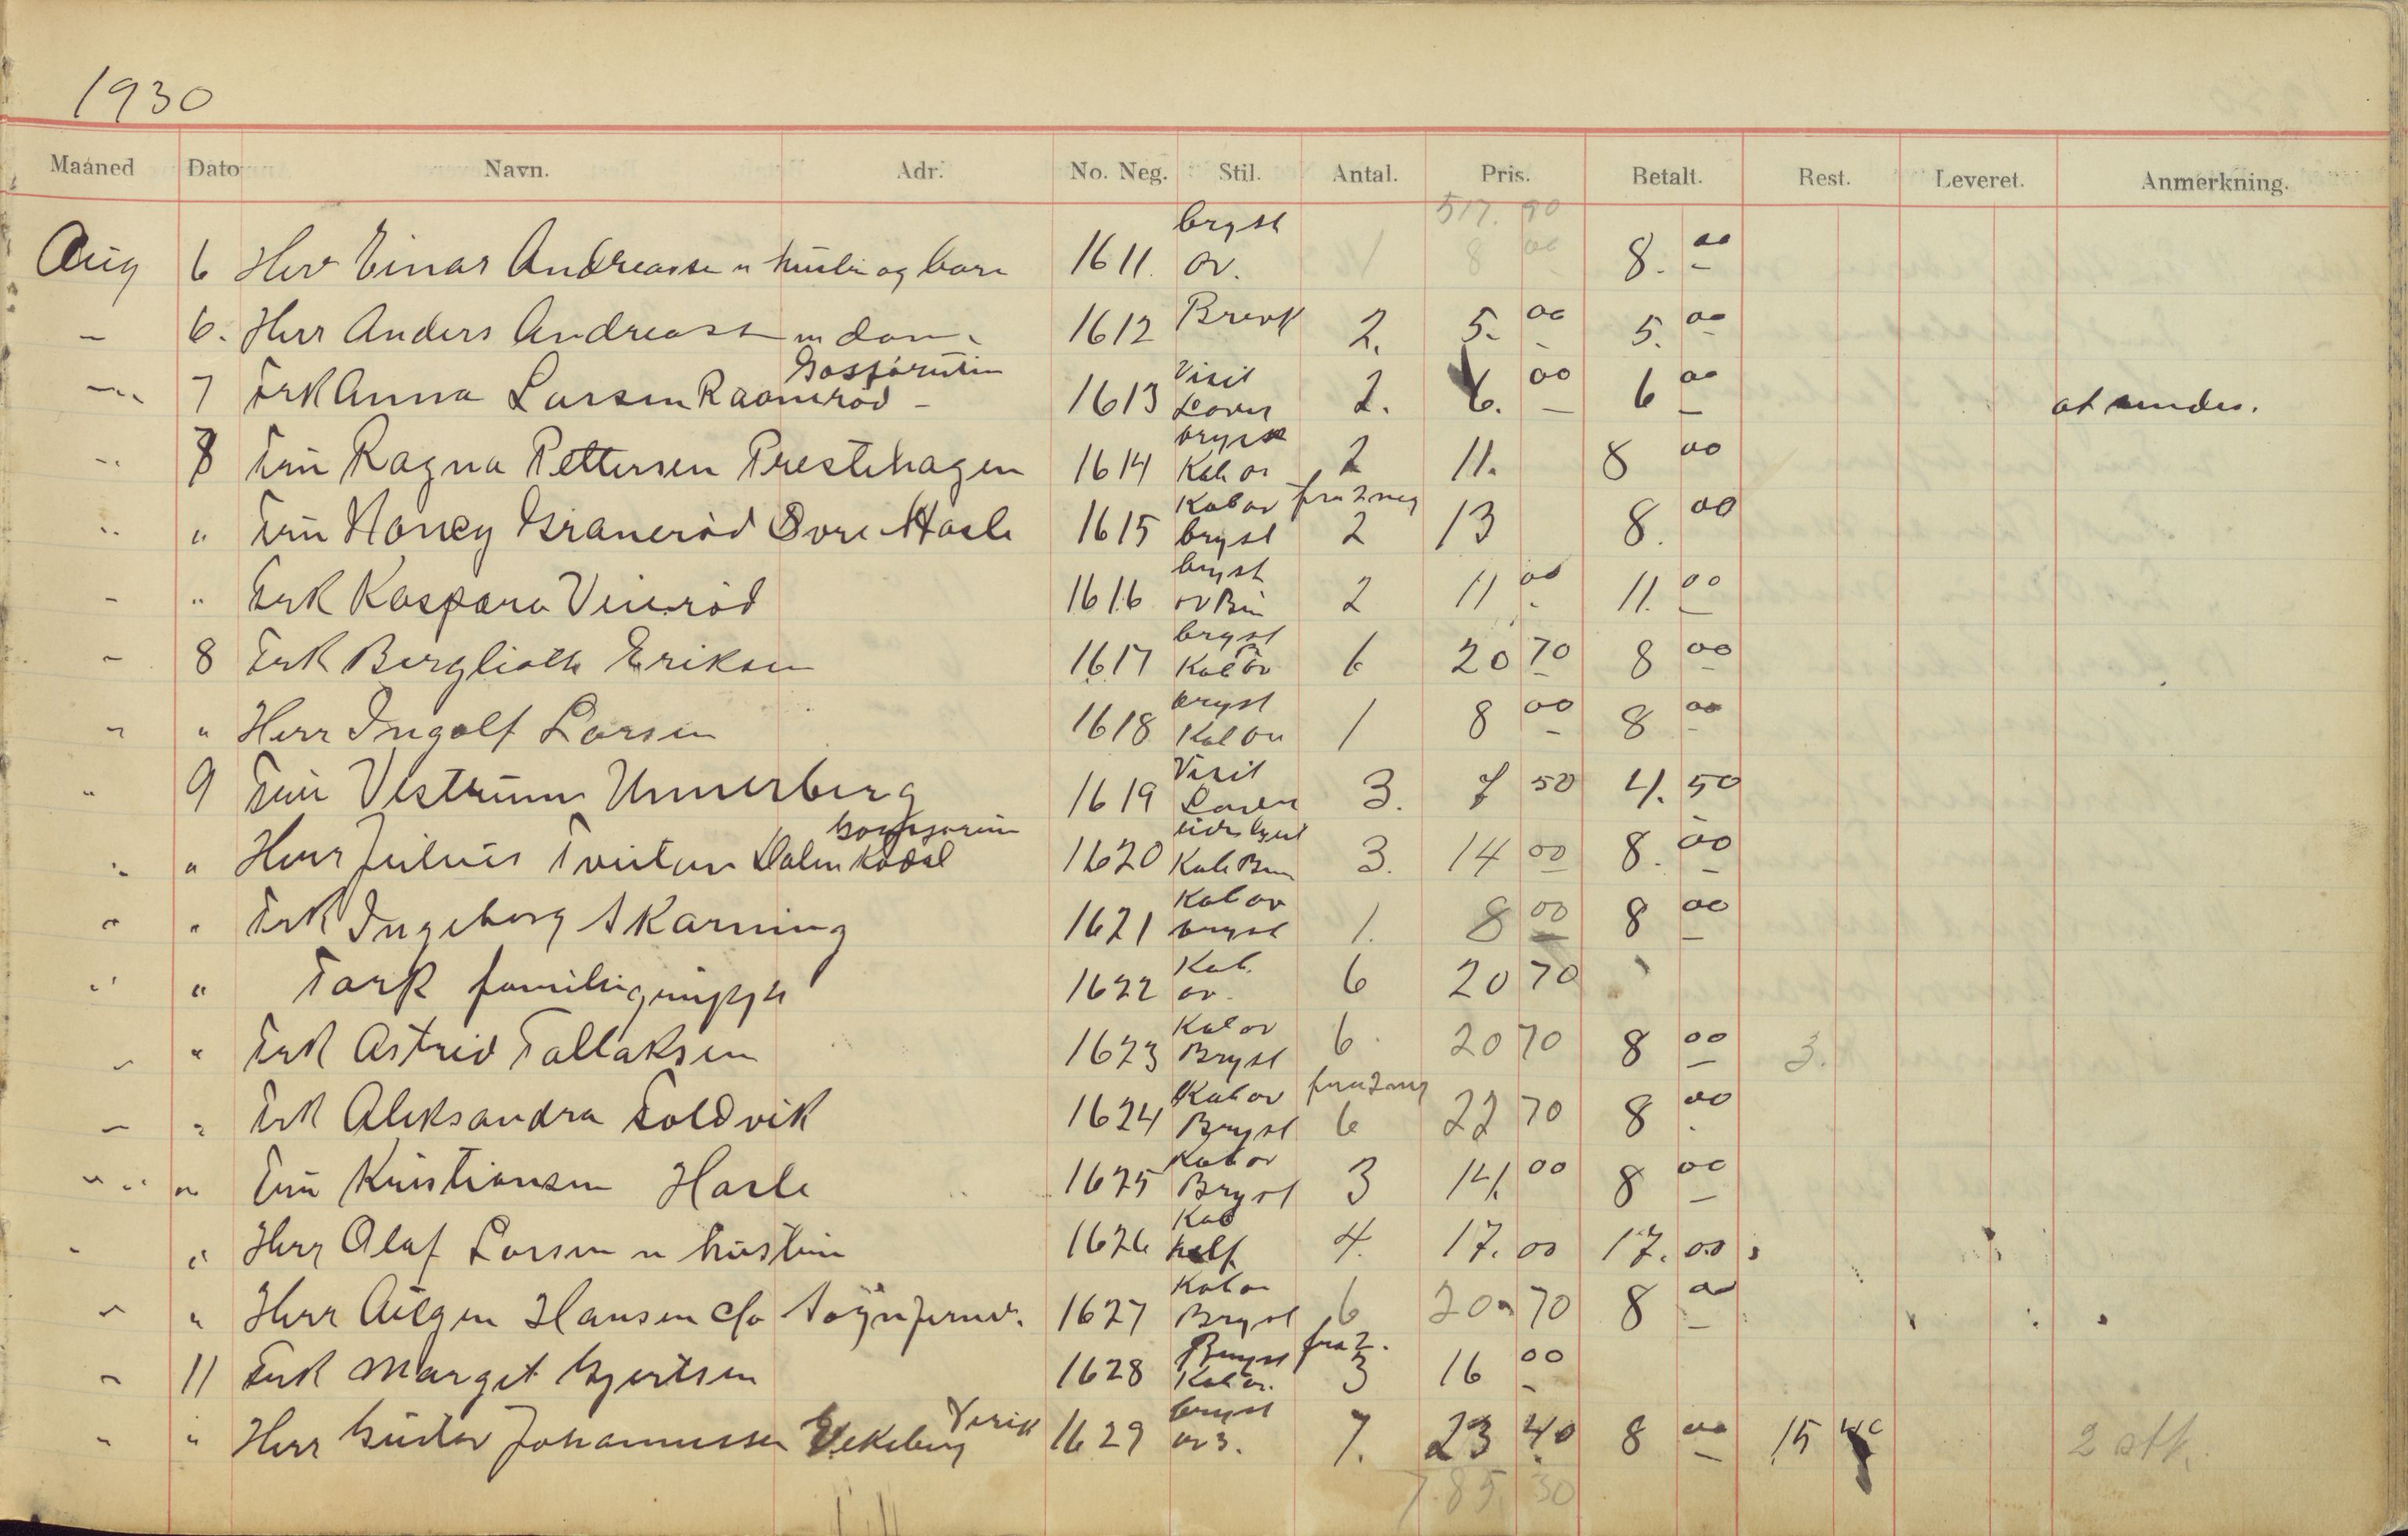 1930
Maaned Dato Navn. Adr. No. Neg. Stil. Antal. Pris. Betalt. Rest. Leveret. Anmerkning.
517. 90
Aug 6 Herr Einar Andreassen m hustru og barn 1611. bryst ov. 1 8 00 8. 00
6. Herr Anders Andreassen m dam. 1612 Brevk 2. 5. 00 5. 00
7 Frk Anna Larsen Raanerød 1613 Visit 2. 6. 00 6 00 at sendes.
8 Fru Ragna Pettersen Prestehagen 1614 bryst Kab ov 2 11. 8 00
" Fru Nancy Granerød Øvre Hasle 1615 Kab ov fra 2 neg bryst 2 13 8. 00
" Frk Kaspara Vinerød 1616 bryst ov 2 11 00 11. 00
8 Frk Berglioth Eriksen 1617 bryst Kab ov 6 20 70 8 00
" Herr Ingolf Larsen 1618 bryst Kab ov 1 8 00 8 00
9 Fru Vestrum Unnerberg 1619 Visit 3. 7 50 4. 50
" Herr Julius Kodal 1620 Kab 3. 14 00 8. 00
" Frk Ingeborg Skarning 1621 Kab ov bryst 1. 8 00 8 00
" Tark familiegruppe 1622 Kab. ov. 6 20 70
" Frk Astrid Tallaksen 1623 Kab ov Bryst 6 20 70 8 00 3.
" Frk Aleksandra Foldvik 1624 Kab ov fra 2 neg Bryst 6 22 70 8 00
" Fru Kristiansen Hasle 1625 Kab ov Bryst 3 14. 00 8 00
" Herr Olaf Larsen m hustru 1626 Kab helf 4. 17. 00 17. 00
" Herr Hansen c/o 1627 Kab ov Bryst 6 20 70 8 00
11 Frk Margit Gjertsen 1628 Bryst fra 2. Kab ov. 3 16 00
" Herr Gustav Johannessen Ekeberg 1629 bryst ov 3. 7. 23 40 8 00 15 40 2 stk.
785 30